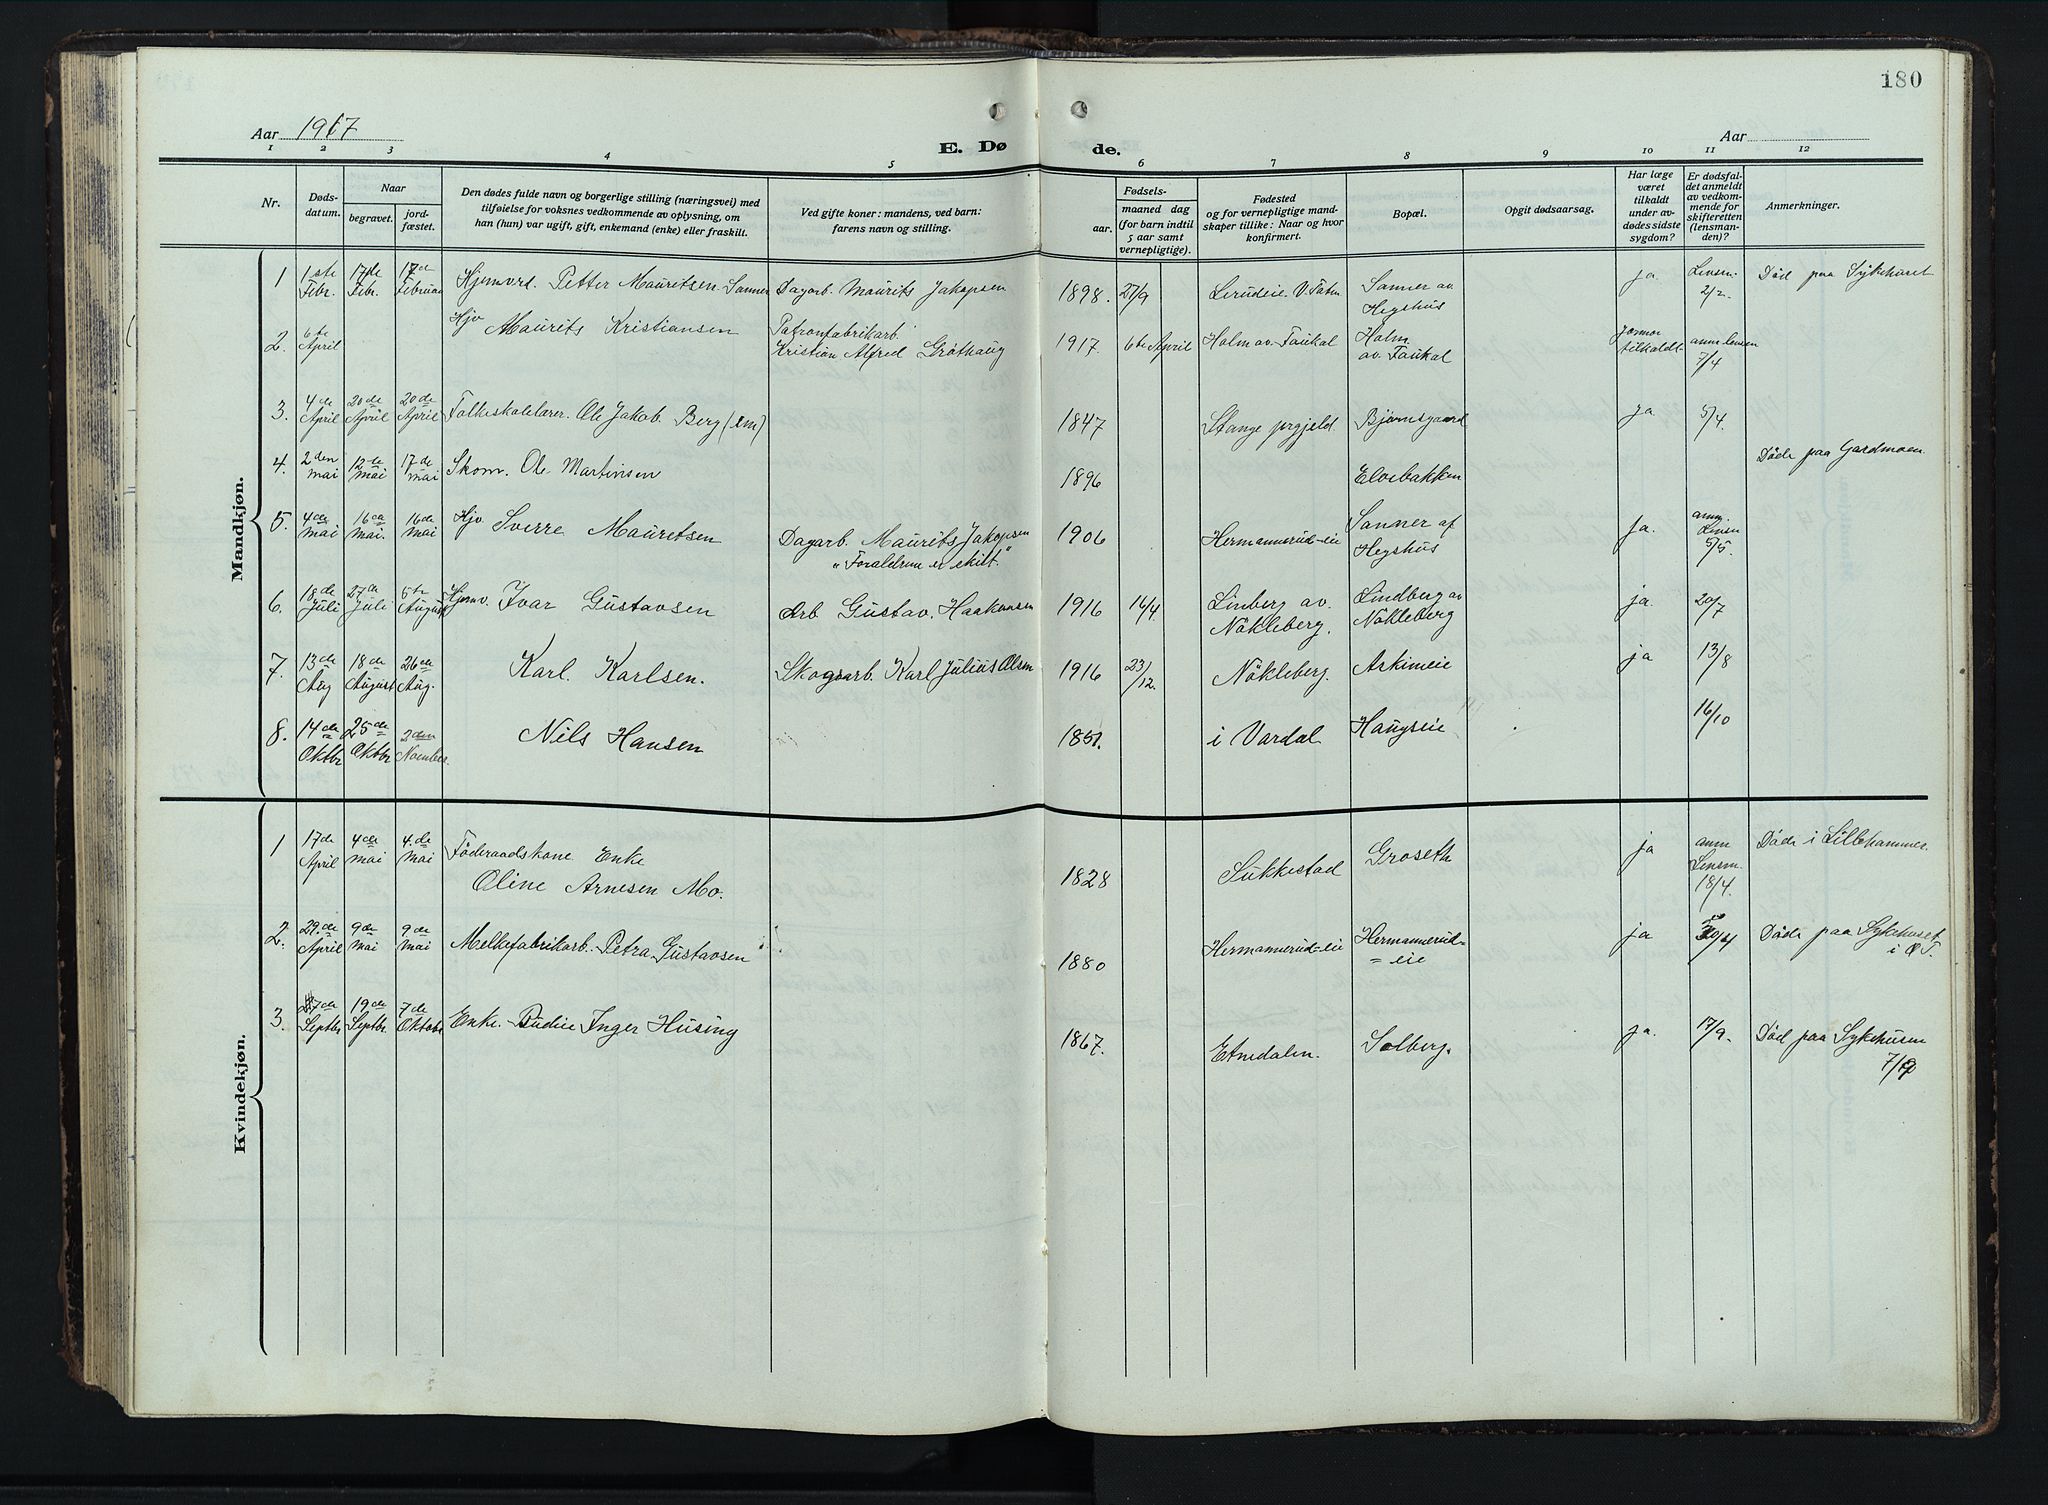 180
Aar 1917
E. Dø
de.
Aar
1 2 3 4 5 6 7 8 9 10 11 12
Nr.
Døds-
datum.
Naar
begravet.
jord-
fæstet.
Den dødes fulde navn og borgerlige stilling (næringsvei) med
tilføielse for voksnes vedkommende av oplysning, om
han (hun) var ugift, gift, enkemand (enke) eller fraskilt.
Ved gifte koner: mandens, ved barn:
farens navn og stilling.
Fødsels-
aar.
maaned dag
(for barn indtil
5 aar samt
vernepligtige).
Fødested
og for vernepligtige mand-
skaper tillike: Naar og hvor
konfirmert.
Bopæl.
Opgit dødsaarsag.
Har læge
været
tilkaldt
under av-
dødes sidste
sygdom?
Er dødsfal-
det anmeldt
av vedkom-
mende for
skifteretten
(lensman-
den)?
Anmerkninger.
Mandkjøn.
1 1ste Febr. 17de Febr. 17de Februar Hjemvrd. Petter Mauritsen Sanner Dagarb. Maurits Jakopsen 1898. 27/9 Lerudeie V. Toten Sanner av Hegshus ja Lensm. 2/2. Død paa Sykehuset
2. 6te April Hjv Maurits Kristiansen Patronfabrikarb. Kristian Alfred Grøthaug 1917. 6te April Holm av Faukal Holm av Faukal Jormor tilkaldt anm lensm 7/4
3. 4de April 20de April 20de April Folkeskolelærer. Ole Jakob Berg (em) 1847 Stange prgjeld Bjørnsgaard Ja 5/4.
4. 2den mai 12de mai 17de mai Skom. Ole Martinsen 1896 Elvebakken Døde paa Gardmoen
5. 4de mai 16de mai. 16de mai Hjv Sverre Mauritsen Dagarb. Maurits Jakopsen "Foraldrene er skilt." 1906 Hermannerud-eie Sanner af Hegshus Ja. anm. Lensm 5/5.
6. 18de Juli 27de Juli 5te August Hjemv. Ivar Gustavsen Arb Gustav. Haakensen 1916 16/4. Linberg av. Nøkleberg. Lindberg av Nøkleberg ja. 20/7
7. 13de Aug 18de August 26de Aug. Karl. Karlsen. Skogsarb. Karl Julius Olsen 1916 23/12. Nøkleberg. Askimeie ja 13/8
8. 14de Oktbr 25de Oktbr 2den November. Nils Hansen 1851. i Vardal Haugseie 16/10
Kvindekjøn.
1 17de April 4de mai 4.de Mai Føderaadskone Enke Oline Arnesen Mo. 1828 Sukkestad Groseth ja anm Lensm. 18/4. Døde i Lillehammer.
2. 29.de April 9de Mai 9de Mai Melkefabrikarb. Petra Gustavsen 1880 Hermannerud-eie Hermannerud=eie ja 30/4 Døde paa Sykehuset i Ø T.
3. 7de Septbr 19de Septbr. 7de Oktobr Enke. Inger Husing 1867. Etnedalen. Solberg. ja. 17/9. Død paa Sykehusen 7/9